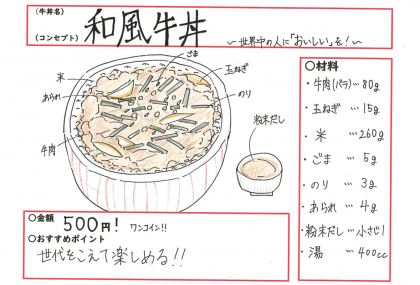 (牛丼名)
(コンセプト)
和風牛丼
～世界中の人に「おいしい」を!～
ごま
玉ねぎ
米
のり
あられ
粉末だし
牛肉
〇材料
・牛肉(バラ)…80g
・玉ねぎ…15g
・米…260g
・ごま…5g
・のり…3g
・あられ…4g
・粉末だし…小さじ1
・湯…400cc
〇金額
500円! ワンコイン!!
〇おすすめポイント
世代をこえて楽しめる!!